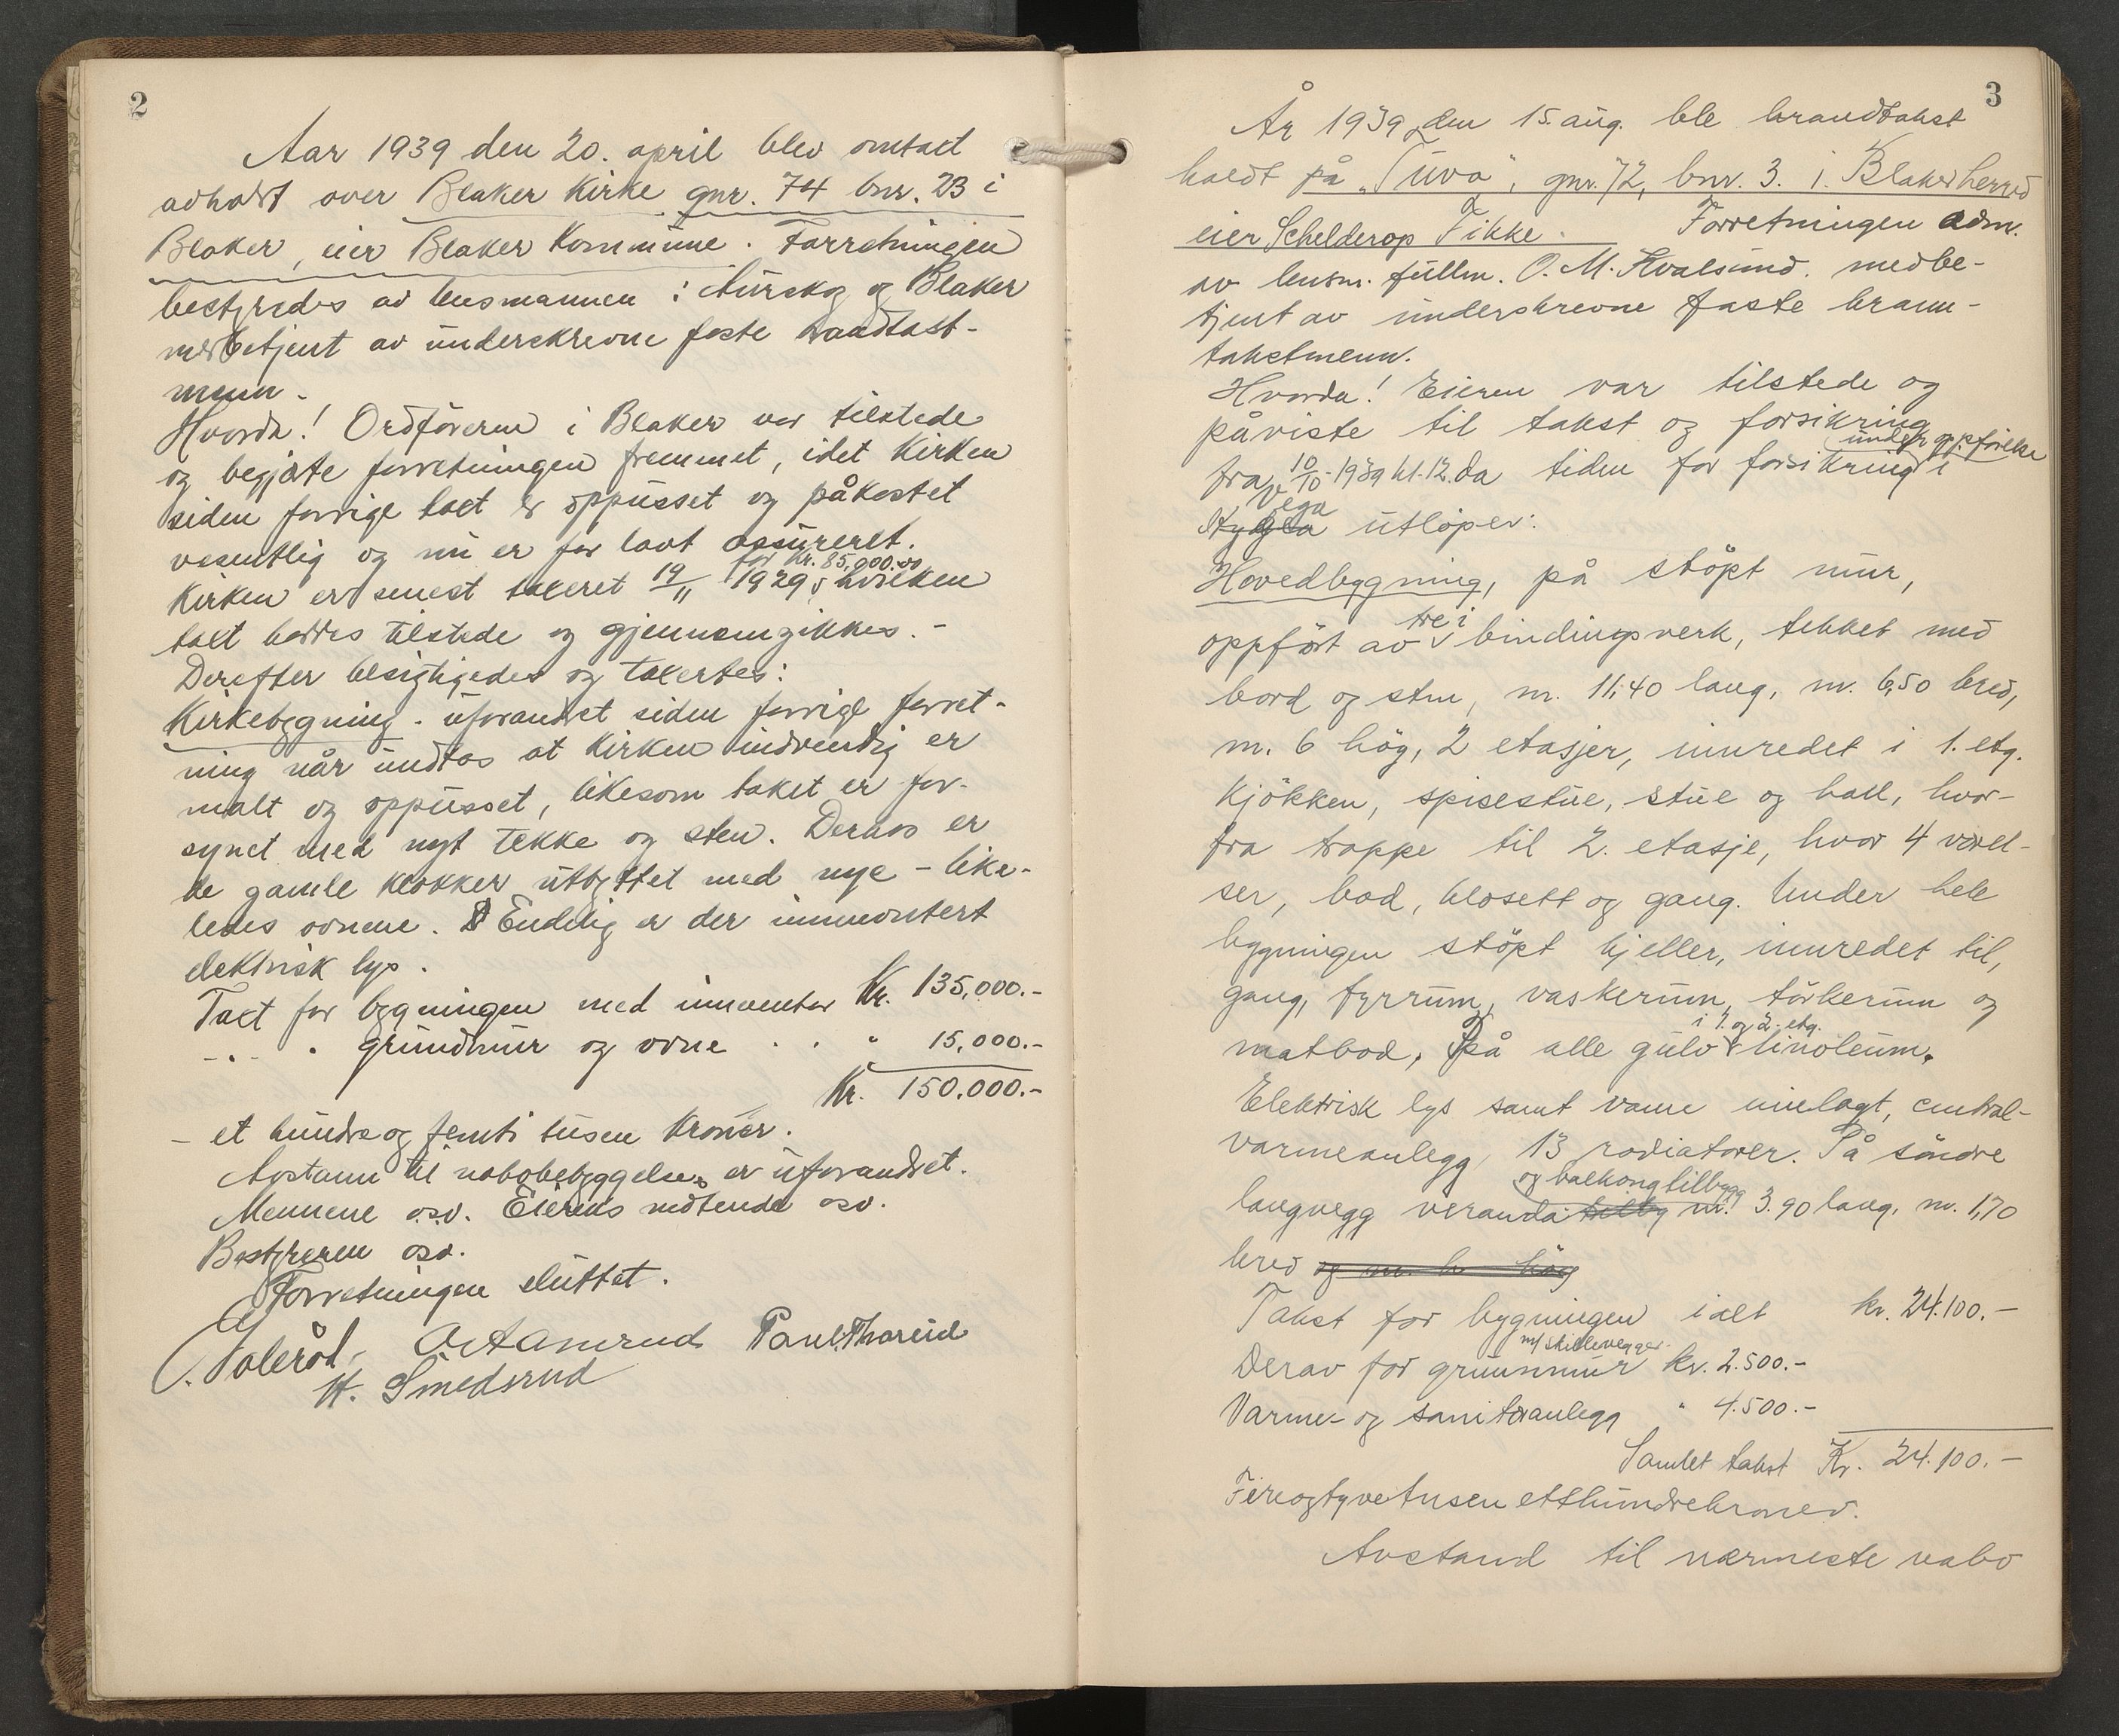 2
Aar 1939 den 20. april blev omtaxt
avholdt over Blaker Kirke gnr. 74 bnr. 23 i
Blaker, eier Blaker Kommune. Forretningen
bestyredes av lensmannen i Aurskog og Blaker
medbetjent av underskrevne faste brandtakst-
menn.
Hvorda! Ordföreren i Blaker var tilstede
og begjærte forretningen fremmet, idet Kirken
siden forrige taxt er oppusset og påkostet
vesentlig og nu er for lavt assureret.
for kr. 85,000.00
Kirken er senest taxeret 19/11 1929, hvilken
taxt haddes tilstede og gjennemgikkes.-
Derefter besigtigedes og taxertes:
Kirkebygning. uforandret siden forrige forret-
ning når undtas at Kirken indvendig er
malt og oppusset, likesom taket er for-
synet med nyt tekke og sten. Derhos er
de gamle klokker utbyttet med nye - like-
ledes ovnene. Endelig er der innmontert
elektrisk lys.
Taxt for bygningen med inventar Kr. 135,000.-
-.- . grundmur og ovne . . " 15,000.-
Kr. 150.000.-
- et hundre og femti tusen Kroner.
Avstann til nabobebyggelse er uforandret.
Mennene o.s.v. Eierens nærvende osv.
Bestyreren osv.
Forretningen sluttet.
Paul Thoreid
H. Smedsrud
3
År 1939 den 15. aug. ble brandtakst
holdt på "Tuva", gnr. 72, bnr. 3. i Blaker herred
eier Schelderop Fikke. Forretningen adm.
av lensm. fullm. O. M. Kvalsund. medbe-
tjent av underskrevne faste brann-
takstmenn.
Hvorda! Eieren var tilstede og
påviste til takst og forsikring
under oppförelse
fra 10/10-1939 kl. 12. da tiden for forsikring i
Vega
utlöper:
Hovedbygning, på stöpt mur,
tre i
oppfört av bindingsverk, tekket med
bord og sten, m. 11,40 lang, m. 6,50 bred,
m. 6 hög, 2 etasjer, innredet i 1. etg.
Kjökken, spisestue, stue og hall, hvor-
fra trappe til 2. etasje, hvor 4 værel-
ser, bod, klosett og gang. Under hele
bygningen stöpt kjeller, innredet til,
gang, fyrrum, vaskerum, törkerum og
i 1. og 2. etg.
matbod, På alle gulv linoleum.
Elektrisk lys samt vann innlagt, central-
varmeanlegg, 13 radiatorer. På söndre
og balkong tilbygg
langvegg veranda tilby m. 3.90 lang, m. 1,70
bred og m. h hög
Takst for bygningen ialt kr. 24.100.-
m/ skillevegger
Derav for grunnmur kr. 2.500.-
Varme- og sanitæranlegg " 4.500.-
Samlet takst Kr. 24.100.-
Fireogtyvetusen etthundrekroner.
Avstand til nærmeste nabo